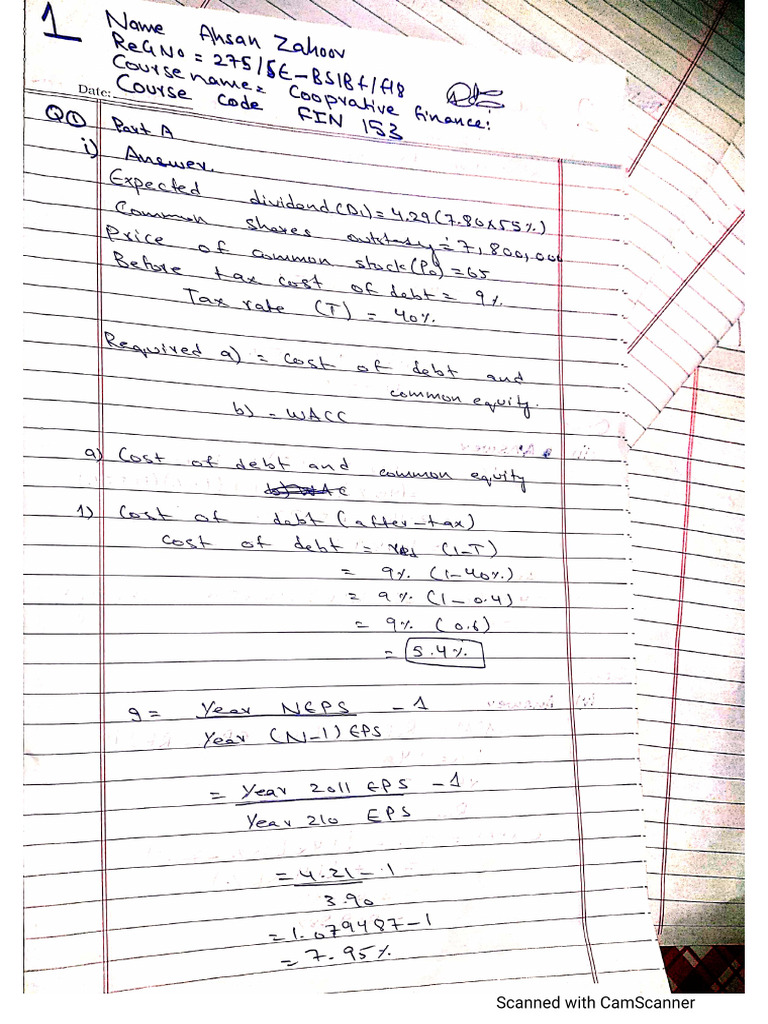 1
Name Ahsan Zahoor
ReG No = 275/SE-BSIBf/f18
Course name = Cooprative finance:
Date:
Course code FIN 153
Q① Part A
i) Answer.
Expected dividend (D1) = 4.29 (7.80x55%)
Common shares outstanding = 7,800,000
Price of common stock (Po) = 65
Before tax cost of debt = 9%
Tax rate (T) = 40%.
Required a) = cost of debt and
common equity.
b) = WACC
a) Cost of debt and common equity
1) Cost of debt (after-tax)
cost of debt = (1-T)
= 9% (1-40%)
= 9% (1-0.4)
= 9% (0.6)
= 5.4%
g = Year N EPS - 1
Year (N-1) EPS
= Year 2011 EPS - 1
Year 210 EPS
= 4.21 - 1
3.90
= 1.079487-1
= 7.95%
Scanned with CamScanner